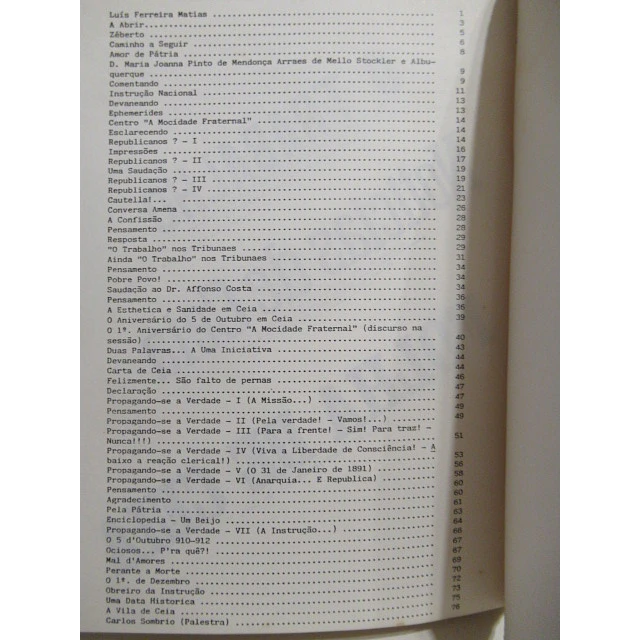 Luís Ferreira Matias ........ 1
A Abrir........ 3
Zéberto ........ 5
Caminho a Seguir ........ 6
Amor de Pátria ........ 8
D. Maria Joanna Pinto de Mendonça Arraes de Mello Stockler e Albu-
querque ........ 9
Comentando ........ 9
Instrução Nacional ........ 11
Devaneando ........ 13
Ephemerides ........ 13
Centro "A Mocidade Fraternal" ........ 14
Esclarecendo ........ 14
Republicanos ? - I ........ 14
Impressões ........ 16
Republicanos ? - II ........ 17
Uma Saudação ........ 19
Republicanos ? - III ........ 19
Republicanos ? - IV ........ 21
Cautella!... ........ 23
Conversa Amena ........ 26
A Confissão ........ 28
Pensamento ........ 28
Resposta ........ 29
"O Trabalho" nos Tribunaes ........ 29
Ainda "O Trabalho" nos Tribunaes ........ 31
Pensamento ........ 34
Pobre Povo! ........ 34
Saudação ao Dr. Affonso Costa ........ 34
Pensamento ........ 36
A Esthetica e Sanidade em Ceia ........ 36
O Aniversário do 5 de Outubro em Ceia ........ 39
O 1º. Aniversário do Centro "A Mocidade Fraternal" (discurso na
sessão) ........ 40
Duas Palavras... A Uma Iniciativa ........ 43
Devaneando ........ 44
Carta de Ceia ........ 44
Felizmente... São falto de pernas ........ 46
Declaração ........ 47
Propagando-se a Verdade - I (A Missão...) ........ 47
Pensamento ........ 49
Propagando-se a Verdade - II (Pela verdade! - Vamos!...) ........ 49
Propagando-se a Verdade - III (Para a frente! - Sim! Para traz! -
Nunca!!!) ........ 51
Propagando-se a Verdade - IV (Viva a Liberdade de Consciência! - A
baixo a reação clerical!) ........ 53
Propagando-se a Verdade - V (O 31 de Janeiro de 1891) ........ 56
Propagando-se a Verdade - VI (Anarquia... E Republica) ........ 58
Pensamento ........ 60
Agradecimento ........ 60
Pela Pátria ........ 61
Enciclopedia - Um Beijo ........ 63
Propagando-se a Verdade - VII (A Instrução...) ........ 64
O 5 d'Outubro 910-912 ........ 66
Ociosos... P'ra quê?! ........ 67
Mal d'Amores ........ 67
Perante a Morte ........ 69
O 1º. de Dezembro ........ 70
Obreiro da Instrução ........ 72
Uma Data Historica ........ 73
A Vila de Ceia ........ 75
Carlos Sombrio (Palestra) ........ 76